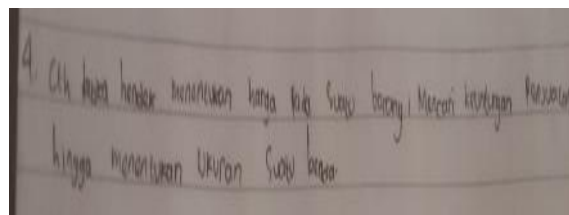 4. Ckh ketika hendak menentukan harga pada suatu barang, Mencari keuntungan Penjualan
hingga menentukan Ukuran Suatu benda.